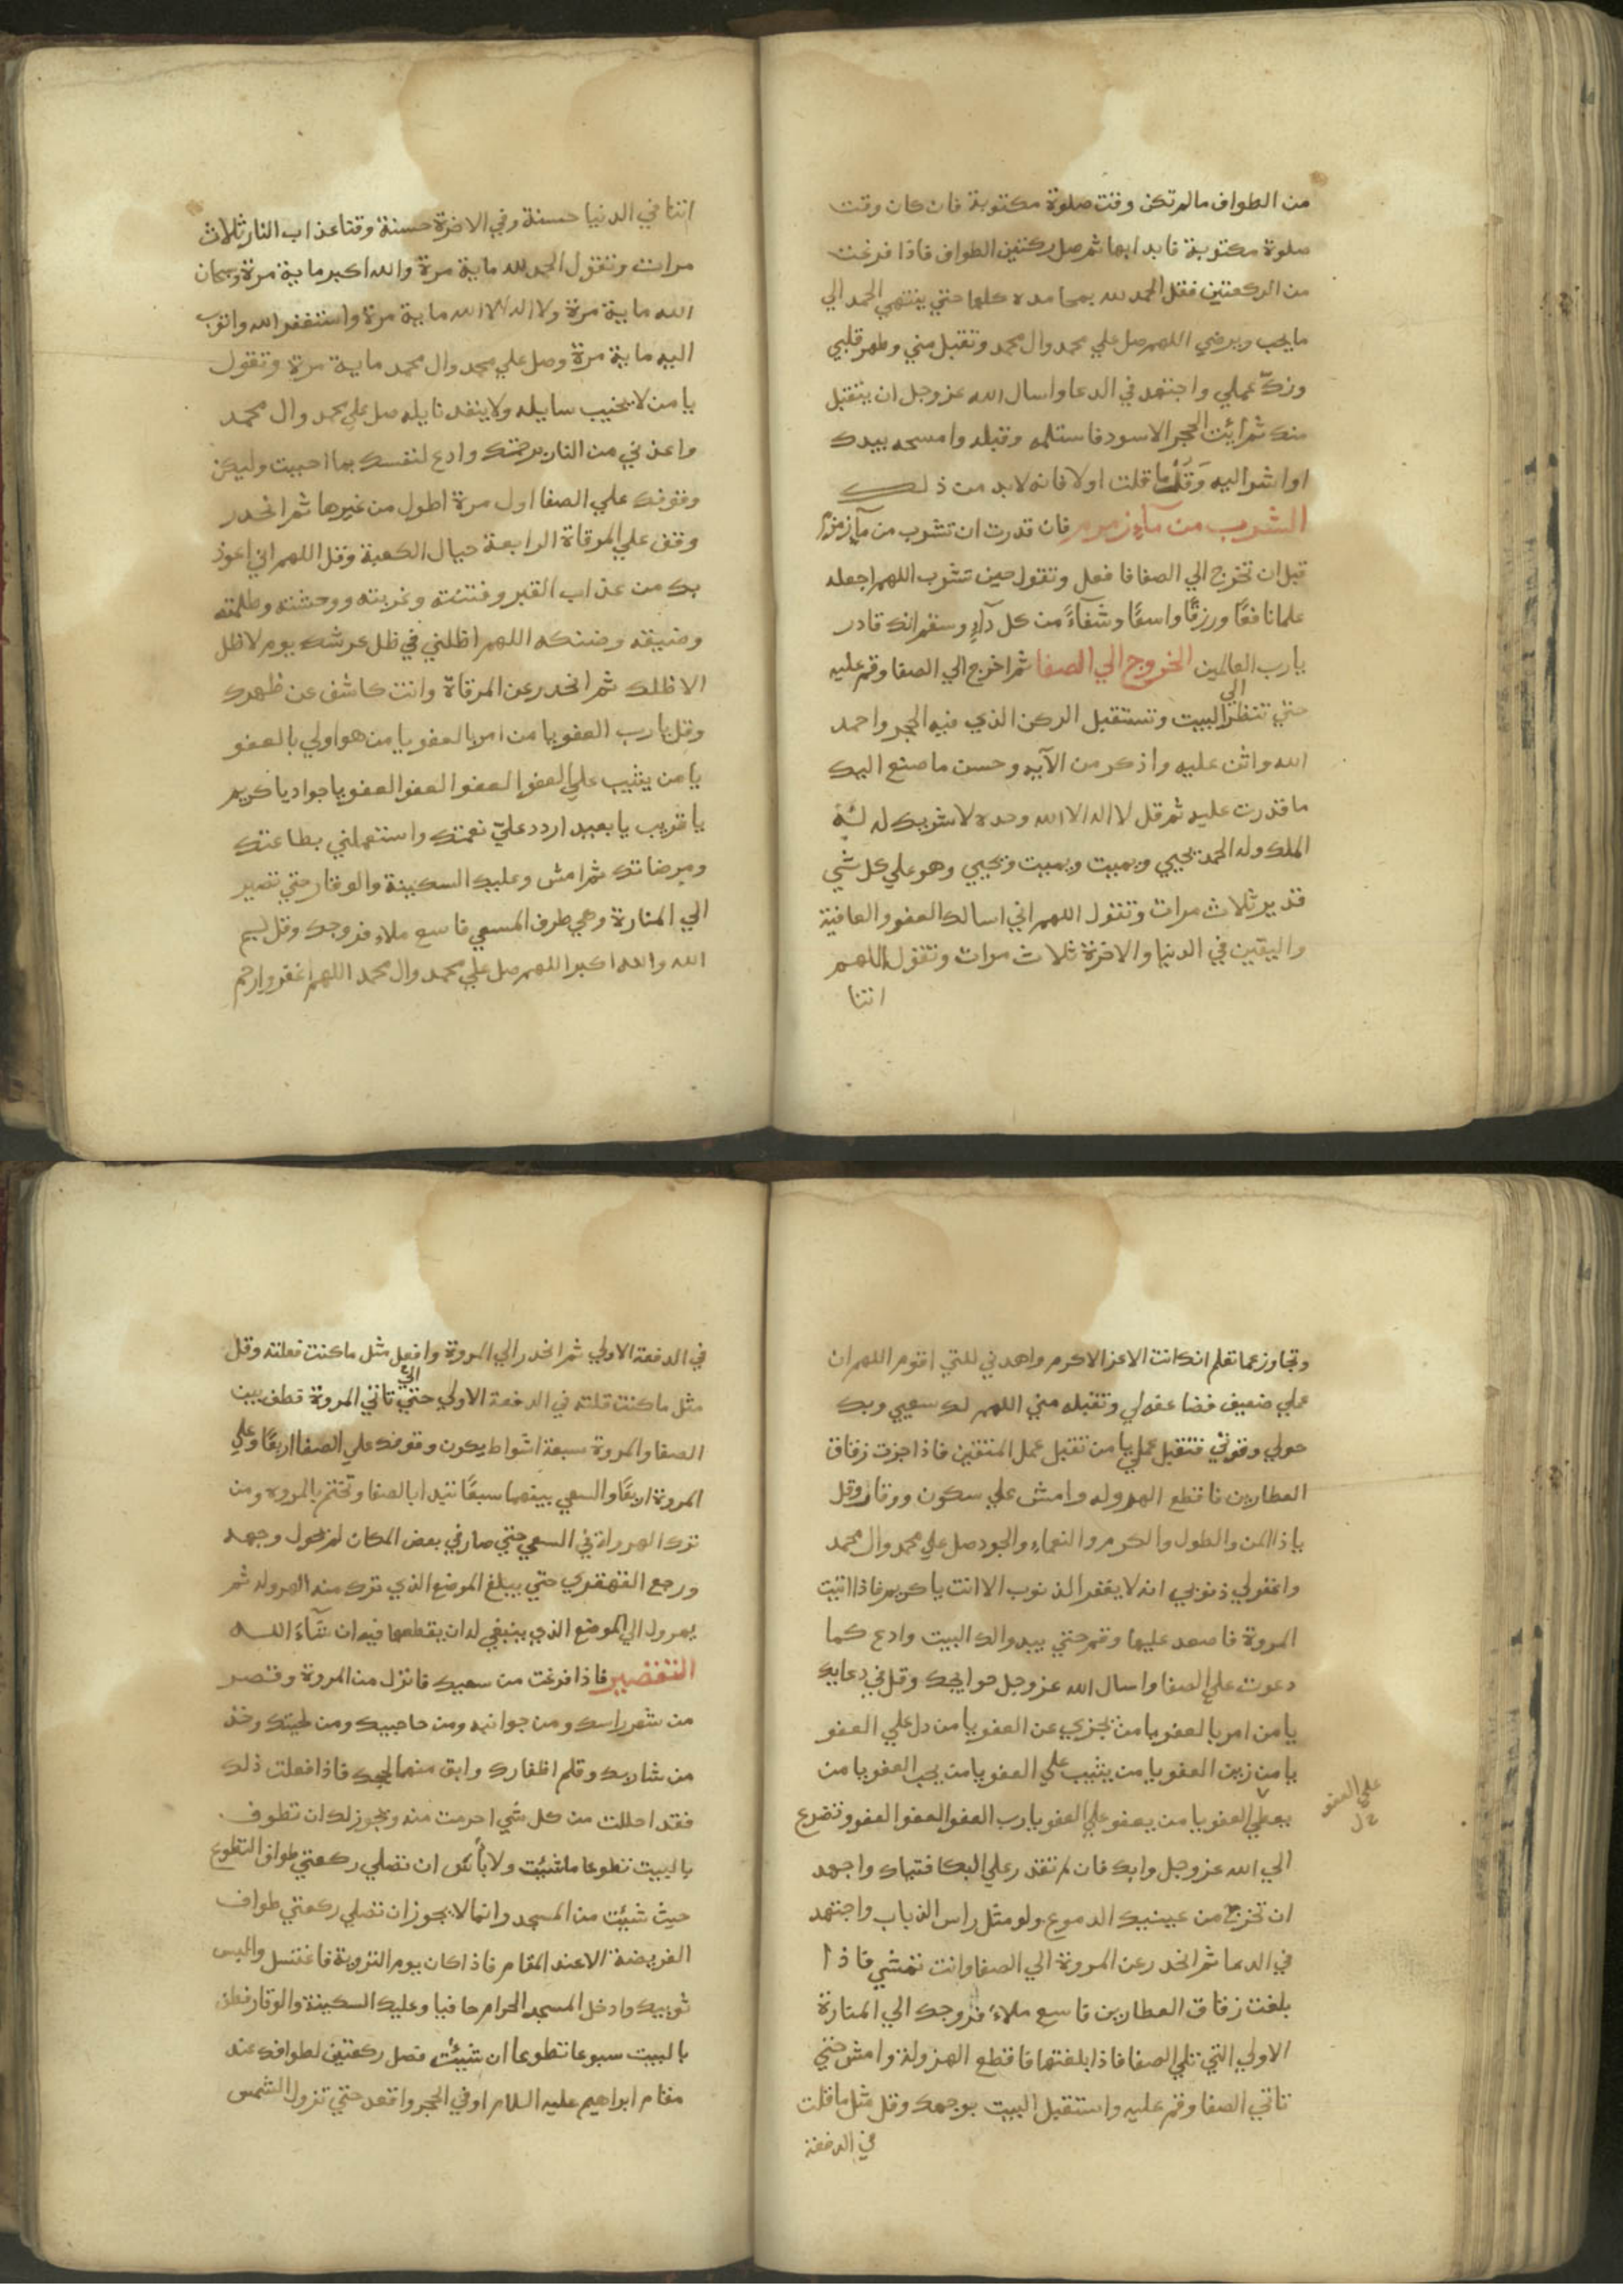 من الطواف مالم تكن وقت صلوة مكتوبة فان كان وقت
صلوة مكتوبة فابدا بها ثم صل ركعتين الطواف فاذا فرغت
من الركعتين فقل الحمد لله بمحامده كلها حتي ينتهي الحمد الي
مايحب ويرضي اللهم صل علي محمد وال محمد وتقبل مني وطهر قلبي
وزكّ عملي واجتهد في الدعا واسال الله عز وجل ان يتقبل
منك ثم ائت الحجر الاسود فاستلمه وقبله وامسحه بيدك
او اشر اليه وَقُل ما قلت اولا فانه لابد من ذلك
الشرب من مآء زمزم فان قدرت ان تشرب من مآء زمزم
قبل ان تخرج الي الصفا فافعل وتقول حين تشرب اللهم اجعله
علما نافعًا ورزقًا واسعًا وشفآءً من كل دآءٍ وسقم انك قادر
يا رب العالمين الخروج الي الصفا ثم اخرج الي الصفا وقم عليه
حتي تنظر الي البيت وتستقبل الركن الذي فيه الحجر واحمد
الله واثن عليه واذكر من الآيه وحسن ما صنع اليك
ما قدرت عليه ثم قل لا اله الا الله وحده لا شريك له له
الملك وله الحمد يحيي ويميت ويميت ويحيي وهو علي كل شي
قدير ثلاث مرات وتقول اللهم اني اسالك العفو والعافية
واليقين في الدنيا والاخرة ثلاث مرات وتقول اللهم
اتنا
اتنا في الدنيا حسنة وفي الاخرة حسنة وقنا عذاب النار ثلاث
مرات وتقول الحمد لله ماية مرة والله اكبر ماية مرة وسبحان
الله ماية مرة ولا اله الا الله ماية مرة واستغفر الله واتوب
اليه ماية مرة وصل علي محمد وال محمد ماية مرة وتقول
يا من لا يخيب سايله ولا ينفد نايله صل علي محمد وال محمد
واعذني من النار برحمتك وادع لنفسك بما احببت وليكن
وقوفك علي الصفا اول مرة اطول من غيرها ثم انحدر
وقف علي المرقاة الرابعة حيال الكعبة وقل اللهم اني اعوذ
بك من عذاب القبر وفتنته وغربته ووحشته وظلمته
وضيقه وضنكه اللهم اظلني في ظل عرشك يوم لا ظل
الا ظلك ثم انحدر عن المرقاة وانت كاشف عن ظهرك
وقل يا رب العفو يا من امر بالعفو يا من هو اولي بالعفو
يا من يثيب علي العفو العفو العفو العفو يا جواد يا كريم
يا قريب يا بعيد اردد عليّ نعمتك واستعملني بطاعتك
ومرضاتك ثم امش وعليك السكينة والوقار حتي تصير
الي المنارة وهي طرف المسعي فاسع ملاء فروجك وقل بسم
الله والله اكبر اللهم صل علي محمد وال محمد اللهم اغفر وارحم
وتجاوز عما تعلم انك انت الاعز الاكرم واهدني للتي اقوم اللهم ان
عملي ضعيف فضاعفه لي وتقبله مني اللهم لك سعيي وبك
حولي وقوتي فتقبل عملي يا من تقبل عمل المتقين فاذا جزت زقاق
العطارين فاقطع الهروله وامش علي سكون ووقار وقل
يا ذا المن والطول والكرم والنعماء والجود صل علي محمد وال محمد
واغفر لي ذنوبي انه لا يغفر الذنوب الا انت يا كريم فاذا اتيت
المروة فاصعد عليها وقم حتي يبدو لك البيت وادع كما
دعوت علي الصفا واسال الله عز وجل حوايجك وقل في دعايك
يا من امر بالعفو يا من يجزي عن العفو يا من دل علي العفو
يا من زين العفو يا من يثيب علي العفو يا من يحب العفو يا من
يعطي العفو يا من يعفو علي العفو يا رب العفو العفو العفو وتضرع
علي العفو
الي الله عز وجل وابك فان لم تقدر علي البكا فتباك واجهد
ان تخرج من عينيك الدموع ولو مثل راس الذباب واجتهد
في الدعا ثم انحدر عن المروة الي الصفا وانت تمشي فاذا
بلغت زقاق العطارين فاسع ملاء فروجك الي المنارة
الاولي التي تلي الصفا فاذا بلغتها فاقطع الهرولة وامش حتي
تاتي الصفا وقم عليه واستقبل البيت بوجهك وقل مثل ما قلت
في الدفعة
في الدفعة الاولي ثم انحدر الي المروة وافعل مثل ما كنت فعلته وقل
مثل ما كنت قلته في الدفعة الاولي حتي تاتي الي المروة فطف بين
الصفا والمروة سبعة اشواط يكون وقوفك علي الصفا اربعًا وعلي
المروة اربعًا والسعي بينهما سبعًا تبدا بالصفا وتختم بالمروه ومن
ترك الهرولة في السعي حتي صار في بعض المكان لم يحول وجهه
ورجع القهقري حتي يبلغ الموضع الذي ترك منه الهروله ثم
يهرول الي الموضع الذي ينبغي له ان يقطعها فيه ان شآء الله
التقصير فاذا فرغت من سعيك فانزل من المروة وقصر
من شعر راسك ومن جوانبه ومن حاجبيك ومن لحيتك وخذ
من شاربك وقلم اظفارك وابق منها لحجك فاذا فعلت ذلك
فقد احللت من كل شي احرمت منه ويجوز لك ان تطوف
بالبيت تطوعا ماشئت ولا بأس ان تصلي ركعتي طواف التطوع
حيث شئت من المسجد وانما لا يجوز ان تصلي ركعتي طواف
الفريضة الا عند المقام فاذا كان يوم التروية فاغتسل والبس
ثوبيك وادخل المسجد الحرام حافيا وعليك السكينة والوقار فطف
بالبيت سبوعا تطوعا ان شئت فصل ركعتين لطوافك عند
مقام ابراهيم عليه السلام او في الحجر واقعد حتي تزول الشمس